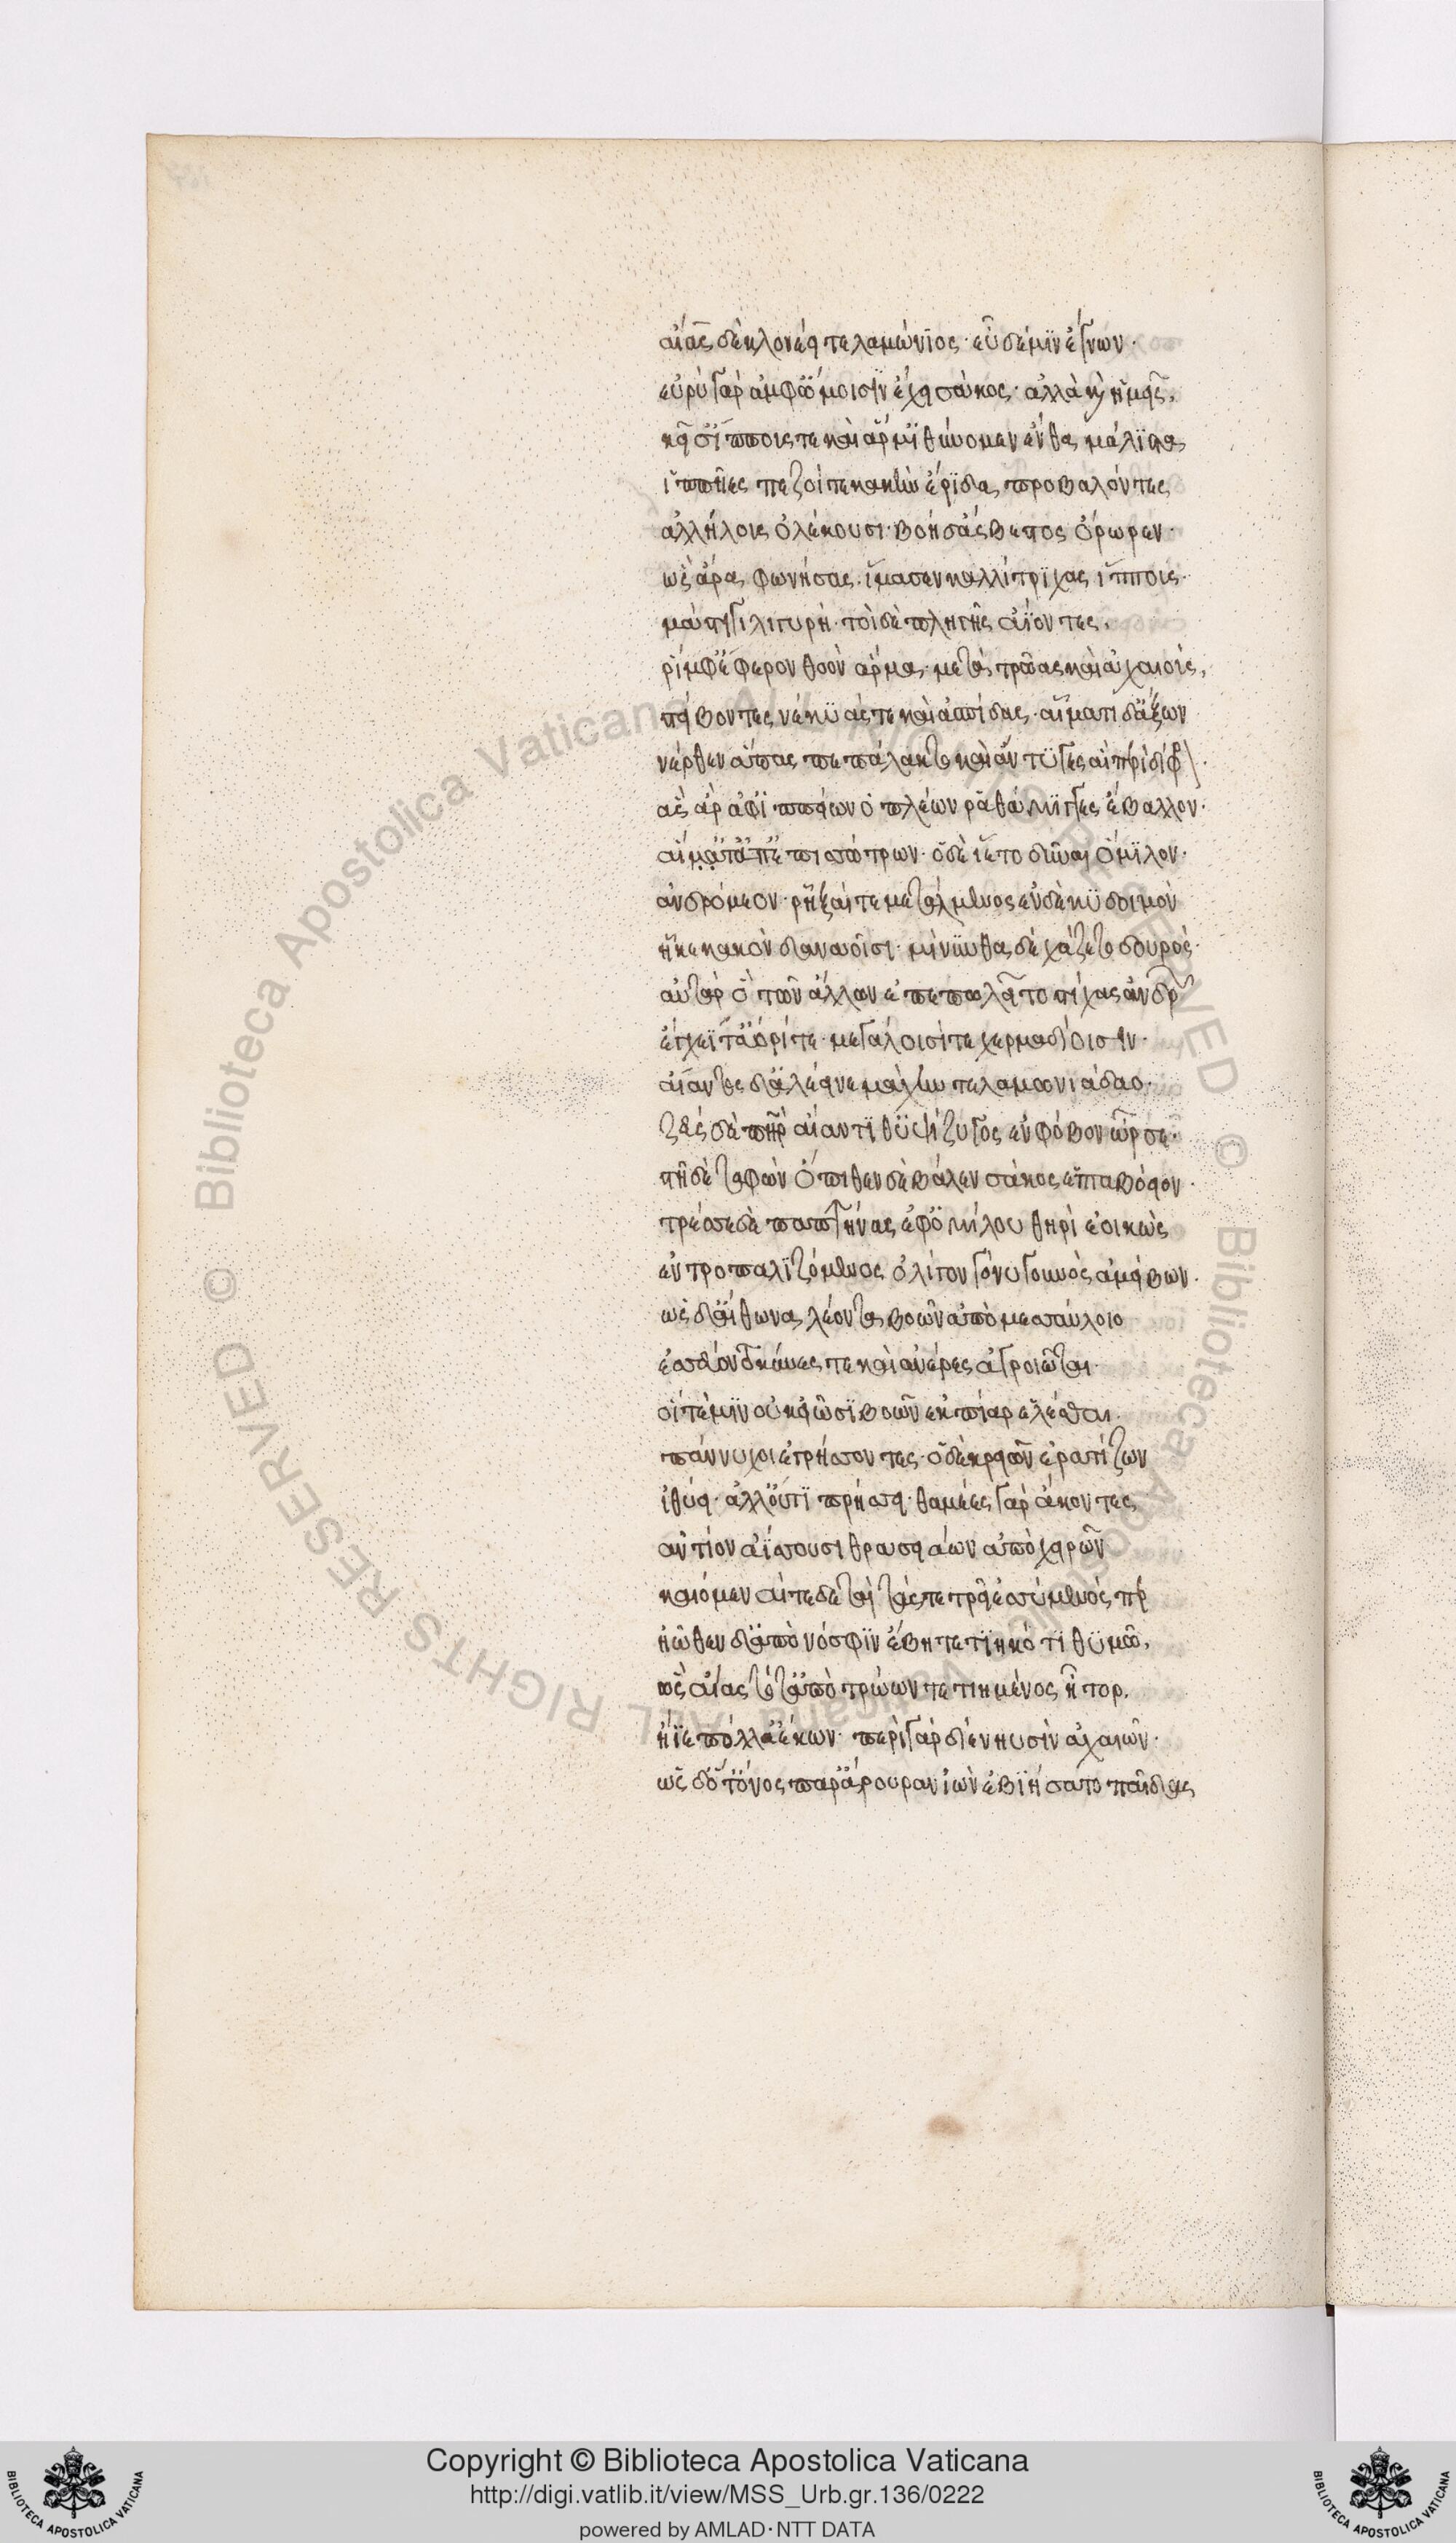 αἴας δὲ κλονέει τελαμώνϊος· εὖ δέ μϊν ἔγνων·
εὐρὺ γὰρ ἀμφ' ὤμοισϊν ἔχει σάκος· ἀλλὰ καὶ ἡμεῖς,
κεῖσ' ἵππους τε καὶ ἅρμ' ἰθύνομεν ἔνθα μάλϊστα
ἱππῆες πεζοί τε κακὴν ἔρϊδα προβαλόντες
ἀλλήλους ὀλέκουσι· βοὴ δ' ἄσβεστος ὄρωρεν·
ὡς ἄρα φωνήσας. ἵμασεν καλλίτρϊχας ἵππους·
μάστιγι λιγυρῇ· τοὶ δὲ πληγῆς ἀΐοντες,
ρίμφ' ἔφερον θοὸν ἅρμα μετὰ τρῶας καὶ ἀχαιούς,
στείβοντες νέκυάς τε καὶ ἀσπίδας· αἵματι δ' ἄξων
νέρθεν ἅπας πεπάλακτο καὶ ἄντυγες αἱ περὶ δίφρον·
ἃς ἄρ' ἀφ' ἱππείων ὁπλέων ραθάμϊγγες ἔβαλλον·
αἵ τ' ἀπ' ἐπισσώτρων· ὁ δὲ ἵετο δῦναι ὅμϊλον·
ἀνδρόμεον· ρῆξαί τε μετάλμενος ἐν δὲ κυδοιμὸν
ἧκε κακὸν δαναοῖσι· μίνυνθα δὲ χάζετο δουρός·
αὐτὰρ ὁ τῶν ἄλλων ἐπεπωλεῖτο στίχας ἀνδρῶν
ἔγχεΐ τ' ἄορί τε· μεγάλοισί τε χερμαδίοισιν·
αἴαντος δ' ἀλέεινε μάχην τελαμωνιάδαο·
ζεὺς δὲ πατὴρ αἴανθ' ὑψίζυγος ἐν φόβον ὦρσε·
στῆ δὲ ταφών ὄπιθεν δὲ βάλεν σάκος ἑπταβόειον·
τρέσσε δὲ παπτήνας ἐφ' ὁμίλου θηρὶ ἐοικὼς
ἐντροπαλϊζόμενος ὀλίγον γόνυ γουνὸς ἀμείβων·
ὡς δ' αἴθωνα λέοντα βοῶν ἀπὸ μεσσαύλοιο
ἐσσεύοντο κύνες τε καὶ ἀνέρες ἀγροιῶται·
οἵ τέ μϊν οὐκ εἰῶσϊ βοῶν ἐκ πίαρ ἑλέσθαι.
πάννυχοι ἐγρήσσοντες· ὁ δὲ κρειῶν ἐρατίζων
ἰθύει· ἀλλ' οὔτι πρήσσει· θαμέες γὰρ ἄκοντες
ἀντίον ἀΐσσουσι θρασειάων ἀπὸ χειρῶν
καιόμεναί τε δεταί τάς τε τρεῖ ἐσσύμενός περ
ἠῶθεν δ' ἀπὸ νόσφϊν ἔβη τετϊηκότι θυμῷ,
ὣς αἴας τότ' ἀπὸ τρώων τετιημένος ἦτορ.
ἤϊε πόλλ' ἀέκων· περὶ γὰρ δίε νηυσὶν ἀχαιῶν·
ὡς δ' ὅτ' ὄνος παρ' ἄρουραν ἰὼν ἐβϊήσατο παῖδας
Copyright © Biblioteca Apostolica Vaticana
http://digi.vatlib.it/view/MSS_Urb.gr.136/0222
powered by AMLAD·NTT DATA